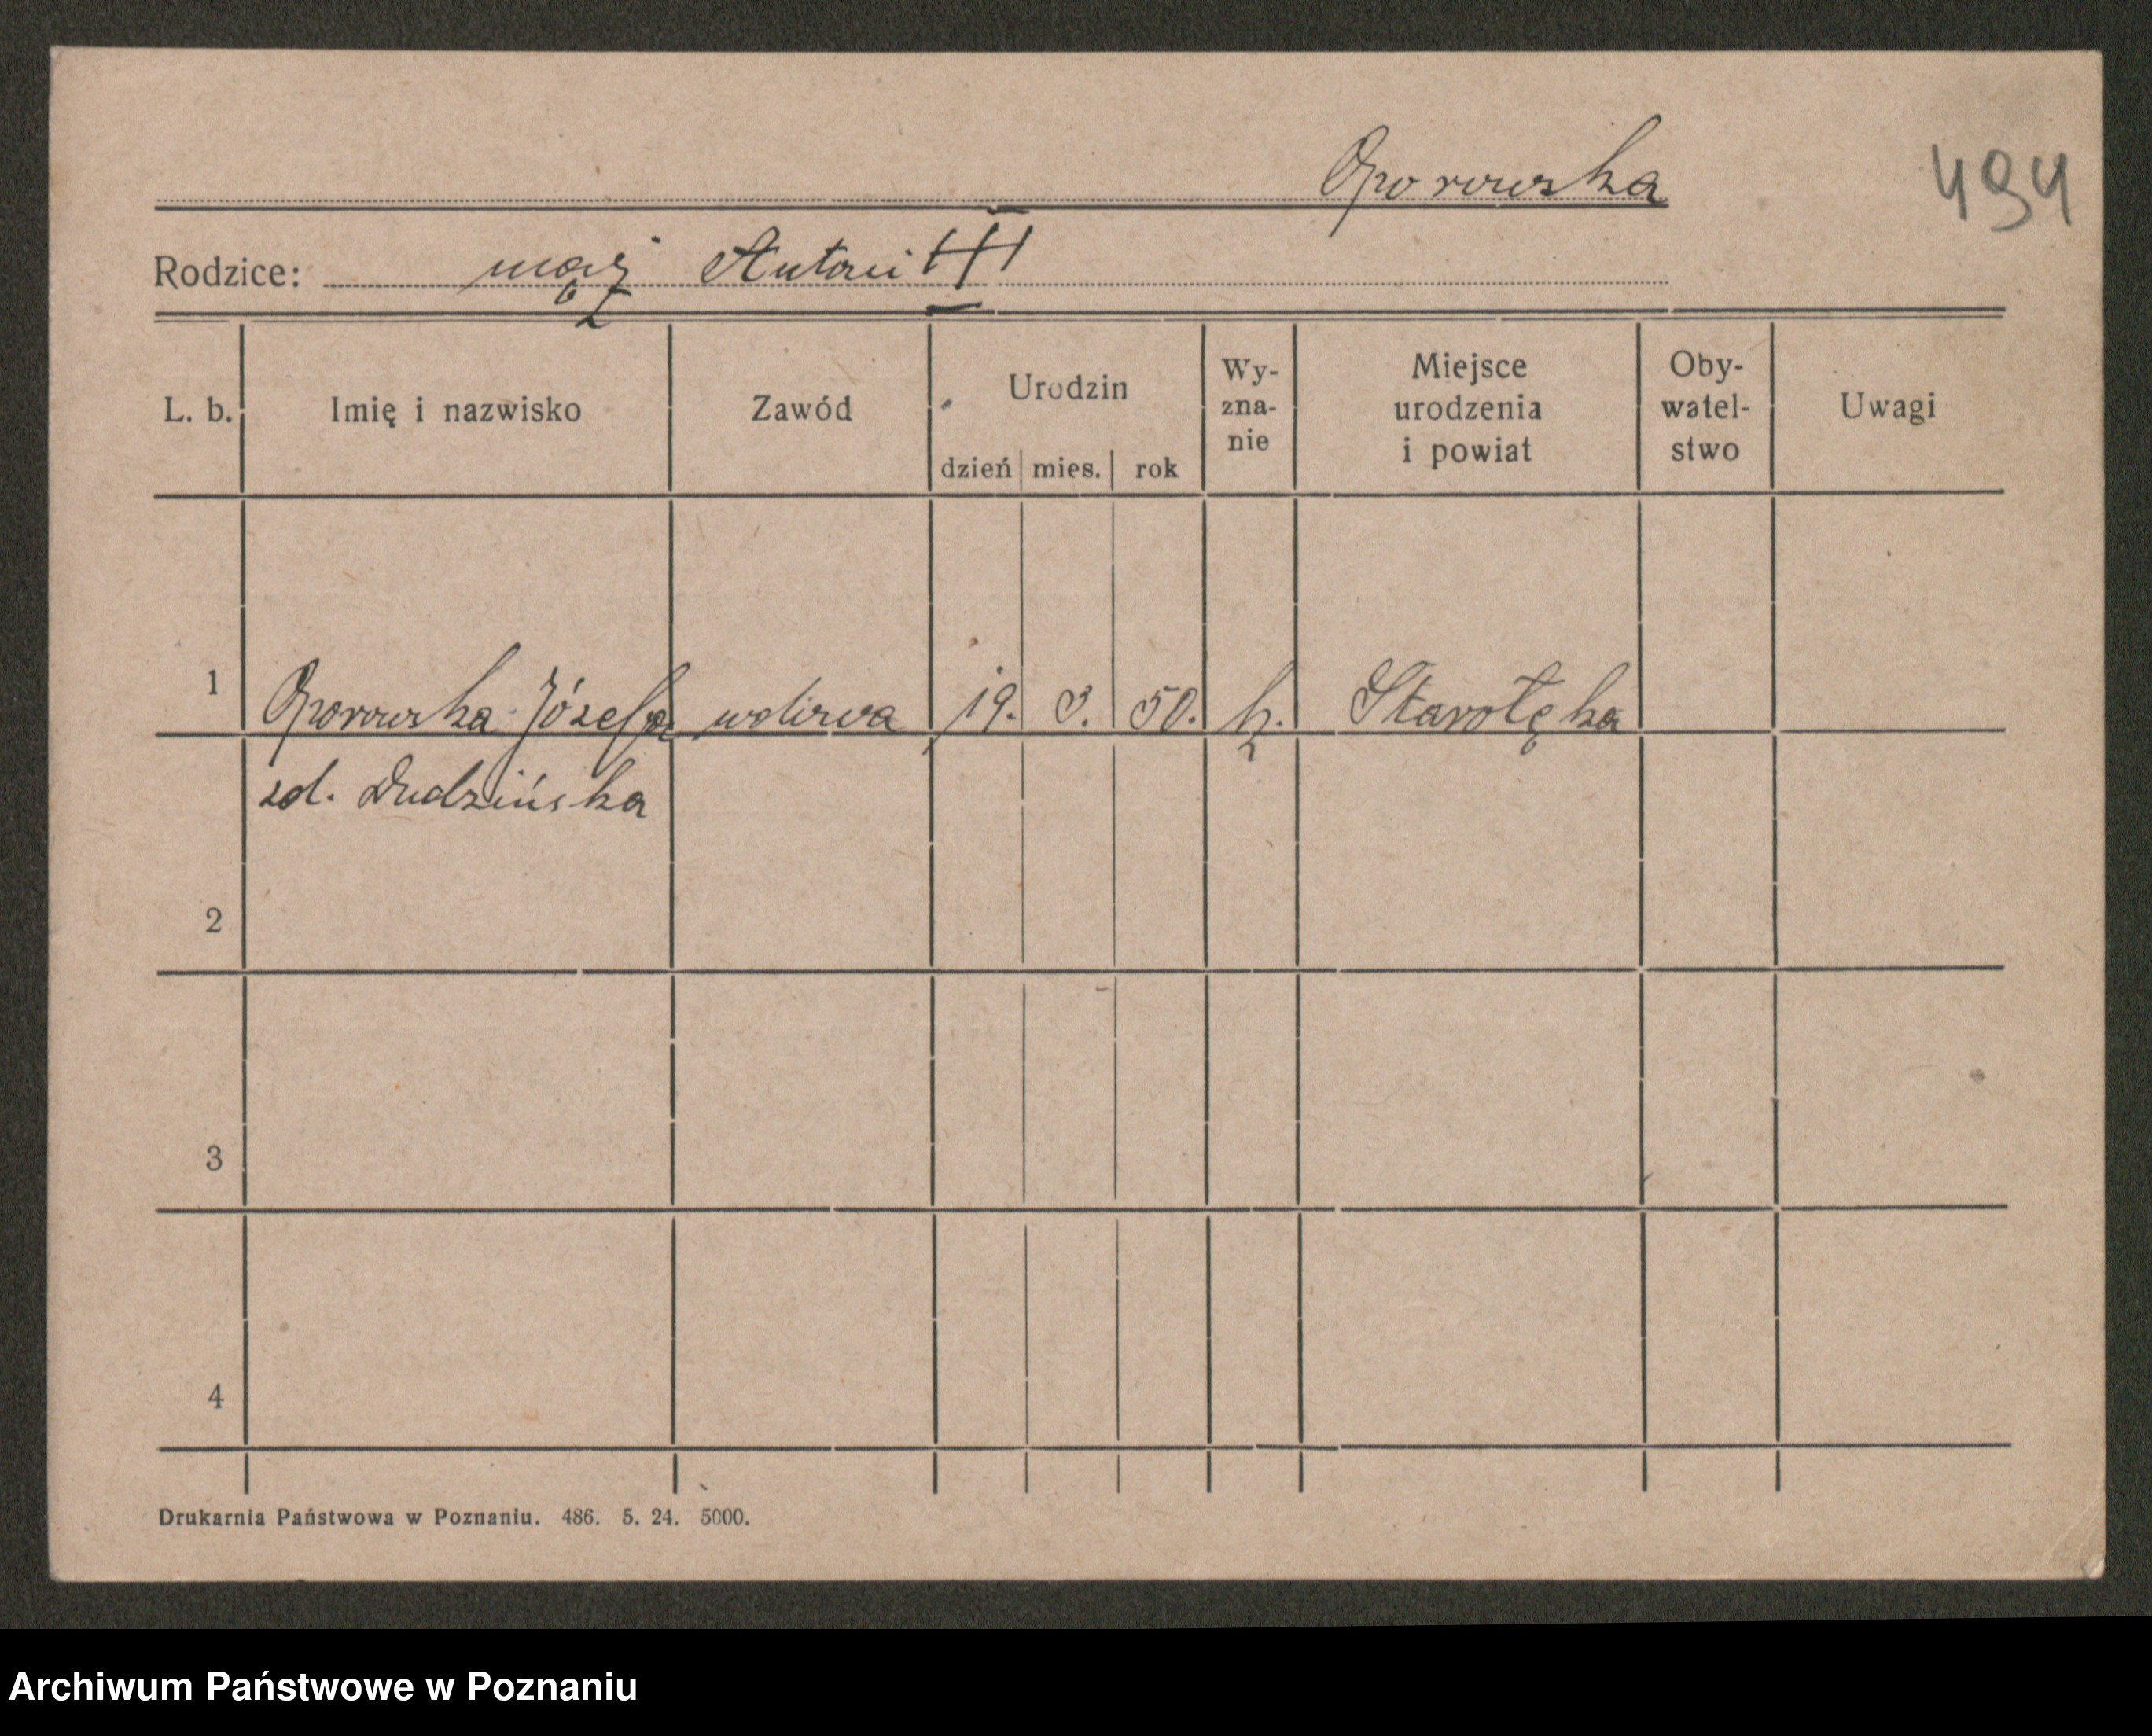 Oporowska
494
Rodzice: mąż Antoni
L. b. Imię i nazwisko Zawód Urodzin dzień mies. rok Wy-zna-nie Miejsce urodzenia i powiat Oby-watel-stwo Uwagi
1 Oporowska Józefa wdowa 19. 3. 50. k. Starołęka
zd. Dudzińska
2
3
4
Drukarnia Państwowa w Poznaniu. 486. 5. 24. 5000.
Archiwum Państwowe w Poznaniu